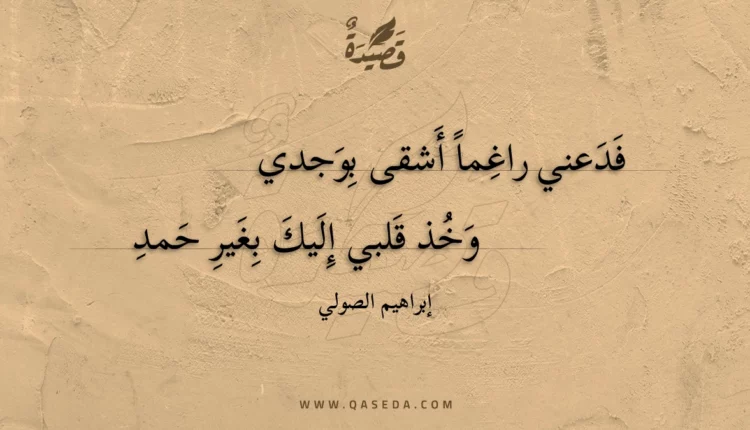 قَصِيدَةٌ
فَدَعني راغِماً أَشقى بِوَجدي
وَخُذ قَلبي إِلَيكَ بِغَيرِ حَمدِ
إبراهيم الصولي
WWW.QASEDA.COM